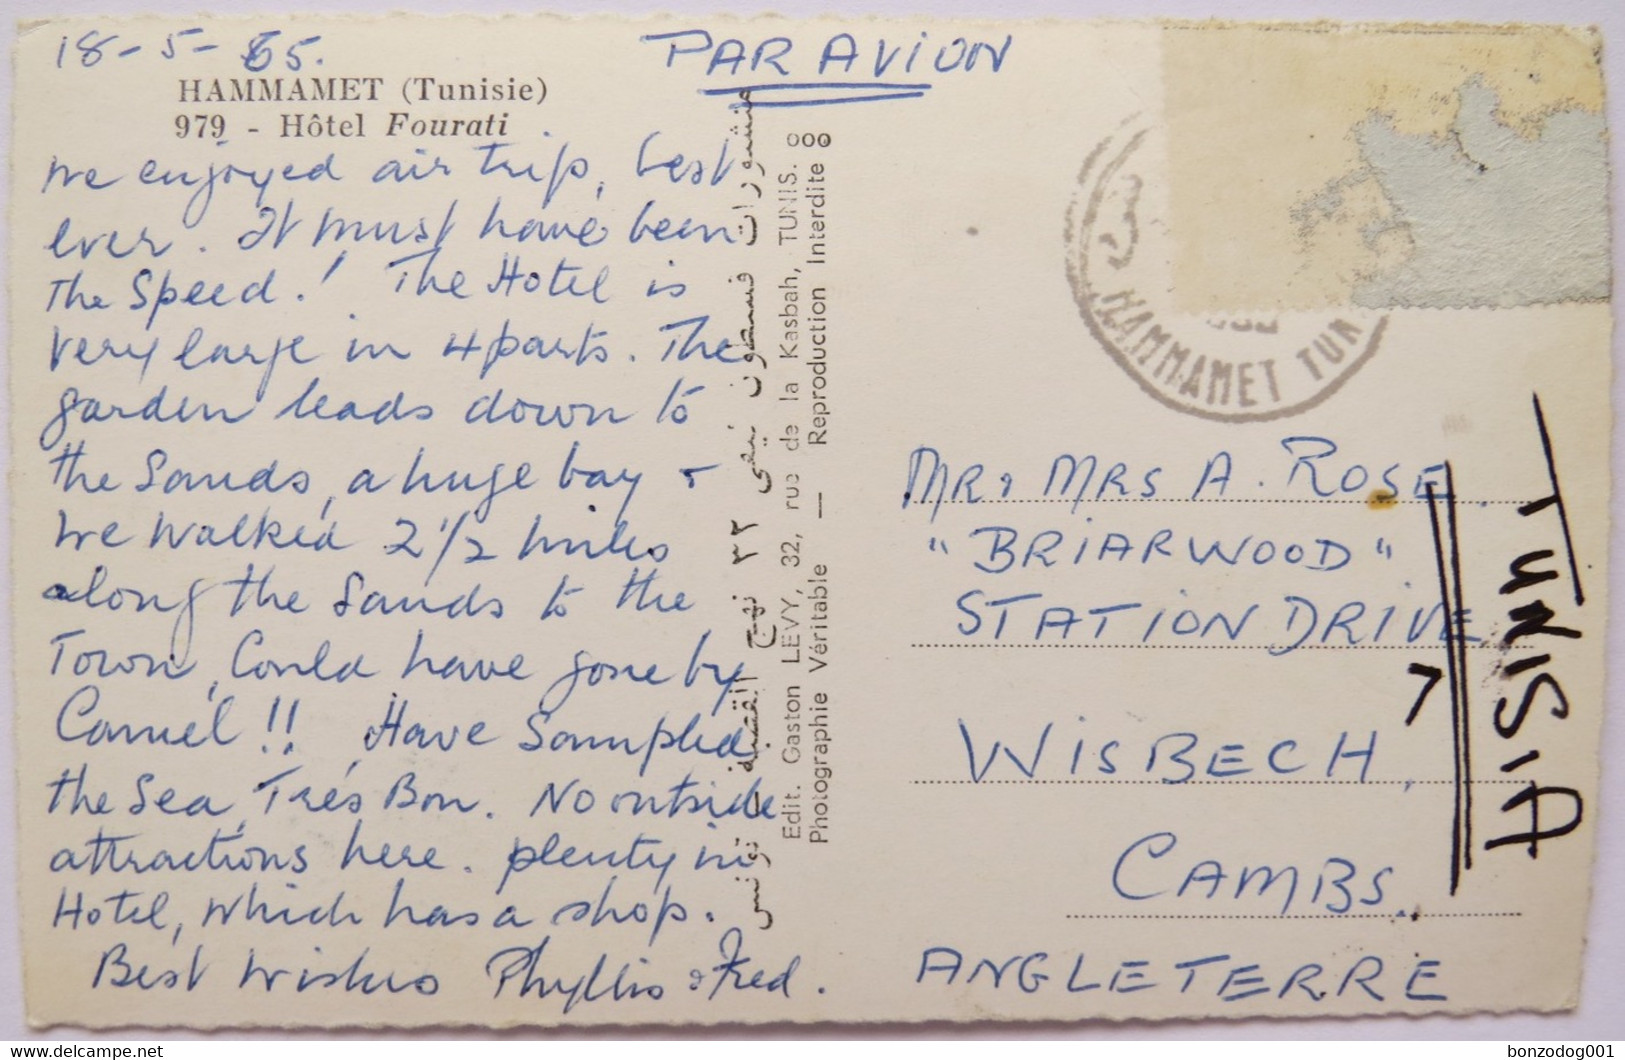 18-5-65.
PAR AVION
HAMMAMET (Tunisie)
979 - Hôtel Fourati
We enjoyed air trip, best
ever. It must have been
The Speed! The Hotel is
very large in 4 parts. The
garden leads down to
the Sands, a huge bay +
We Walked 2 1/2 miles
along the Sands to the
Town, Could have gone by
Camel!! Have Sampled
the Sea, Trés Bon. No outside
attractions here. plenty in
Hotel, Which has a shop.
Best Wishes Phyllis & Fred.
Edit. Gaston LÉVY, 32, rue de la Kasbah, TUNIS.
Photographie Véritable — Reproduction Interdite
HAMMAMET TUN
MR & MRS A. ROSE
"BRIARWOOD"
STATION DRIVE
7
WISBECH,
CAMBS.
ANGLETERRE
TUNISIA
bonzodog001